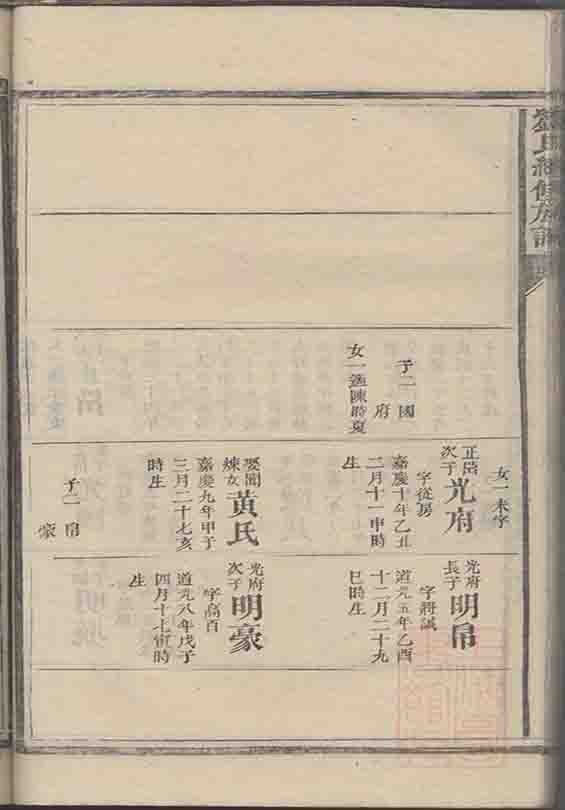 劉氏續修族譜
子二 國
府
女一適陳時夏
女一未字
正㞧
次子
光府
字從房
嘉慶十年乙丑
二月十一申時
生
娶聞
煉女
黃氏
嘉慶九年甲子
三月二十七亥
時生
子二 帛
豪
光府
長子
明帛
字將誠
道光五年乙酉
十二月二十九
巳時生
光府
次子
明豪
字高百
道光八年戊子
四月十七寅時
生